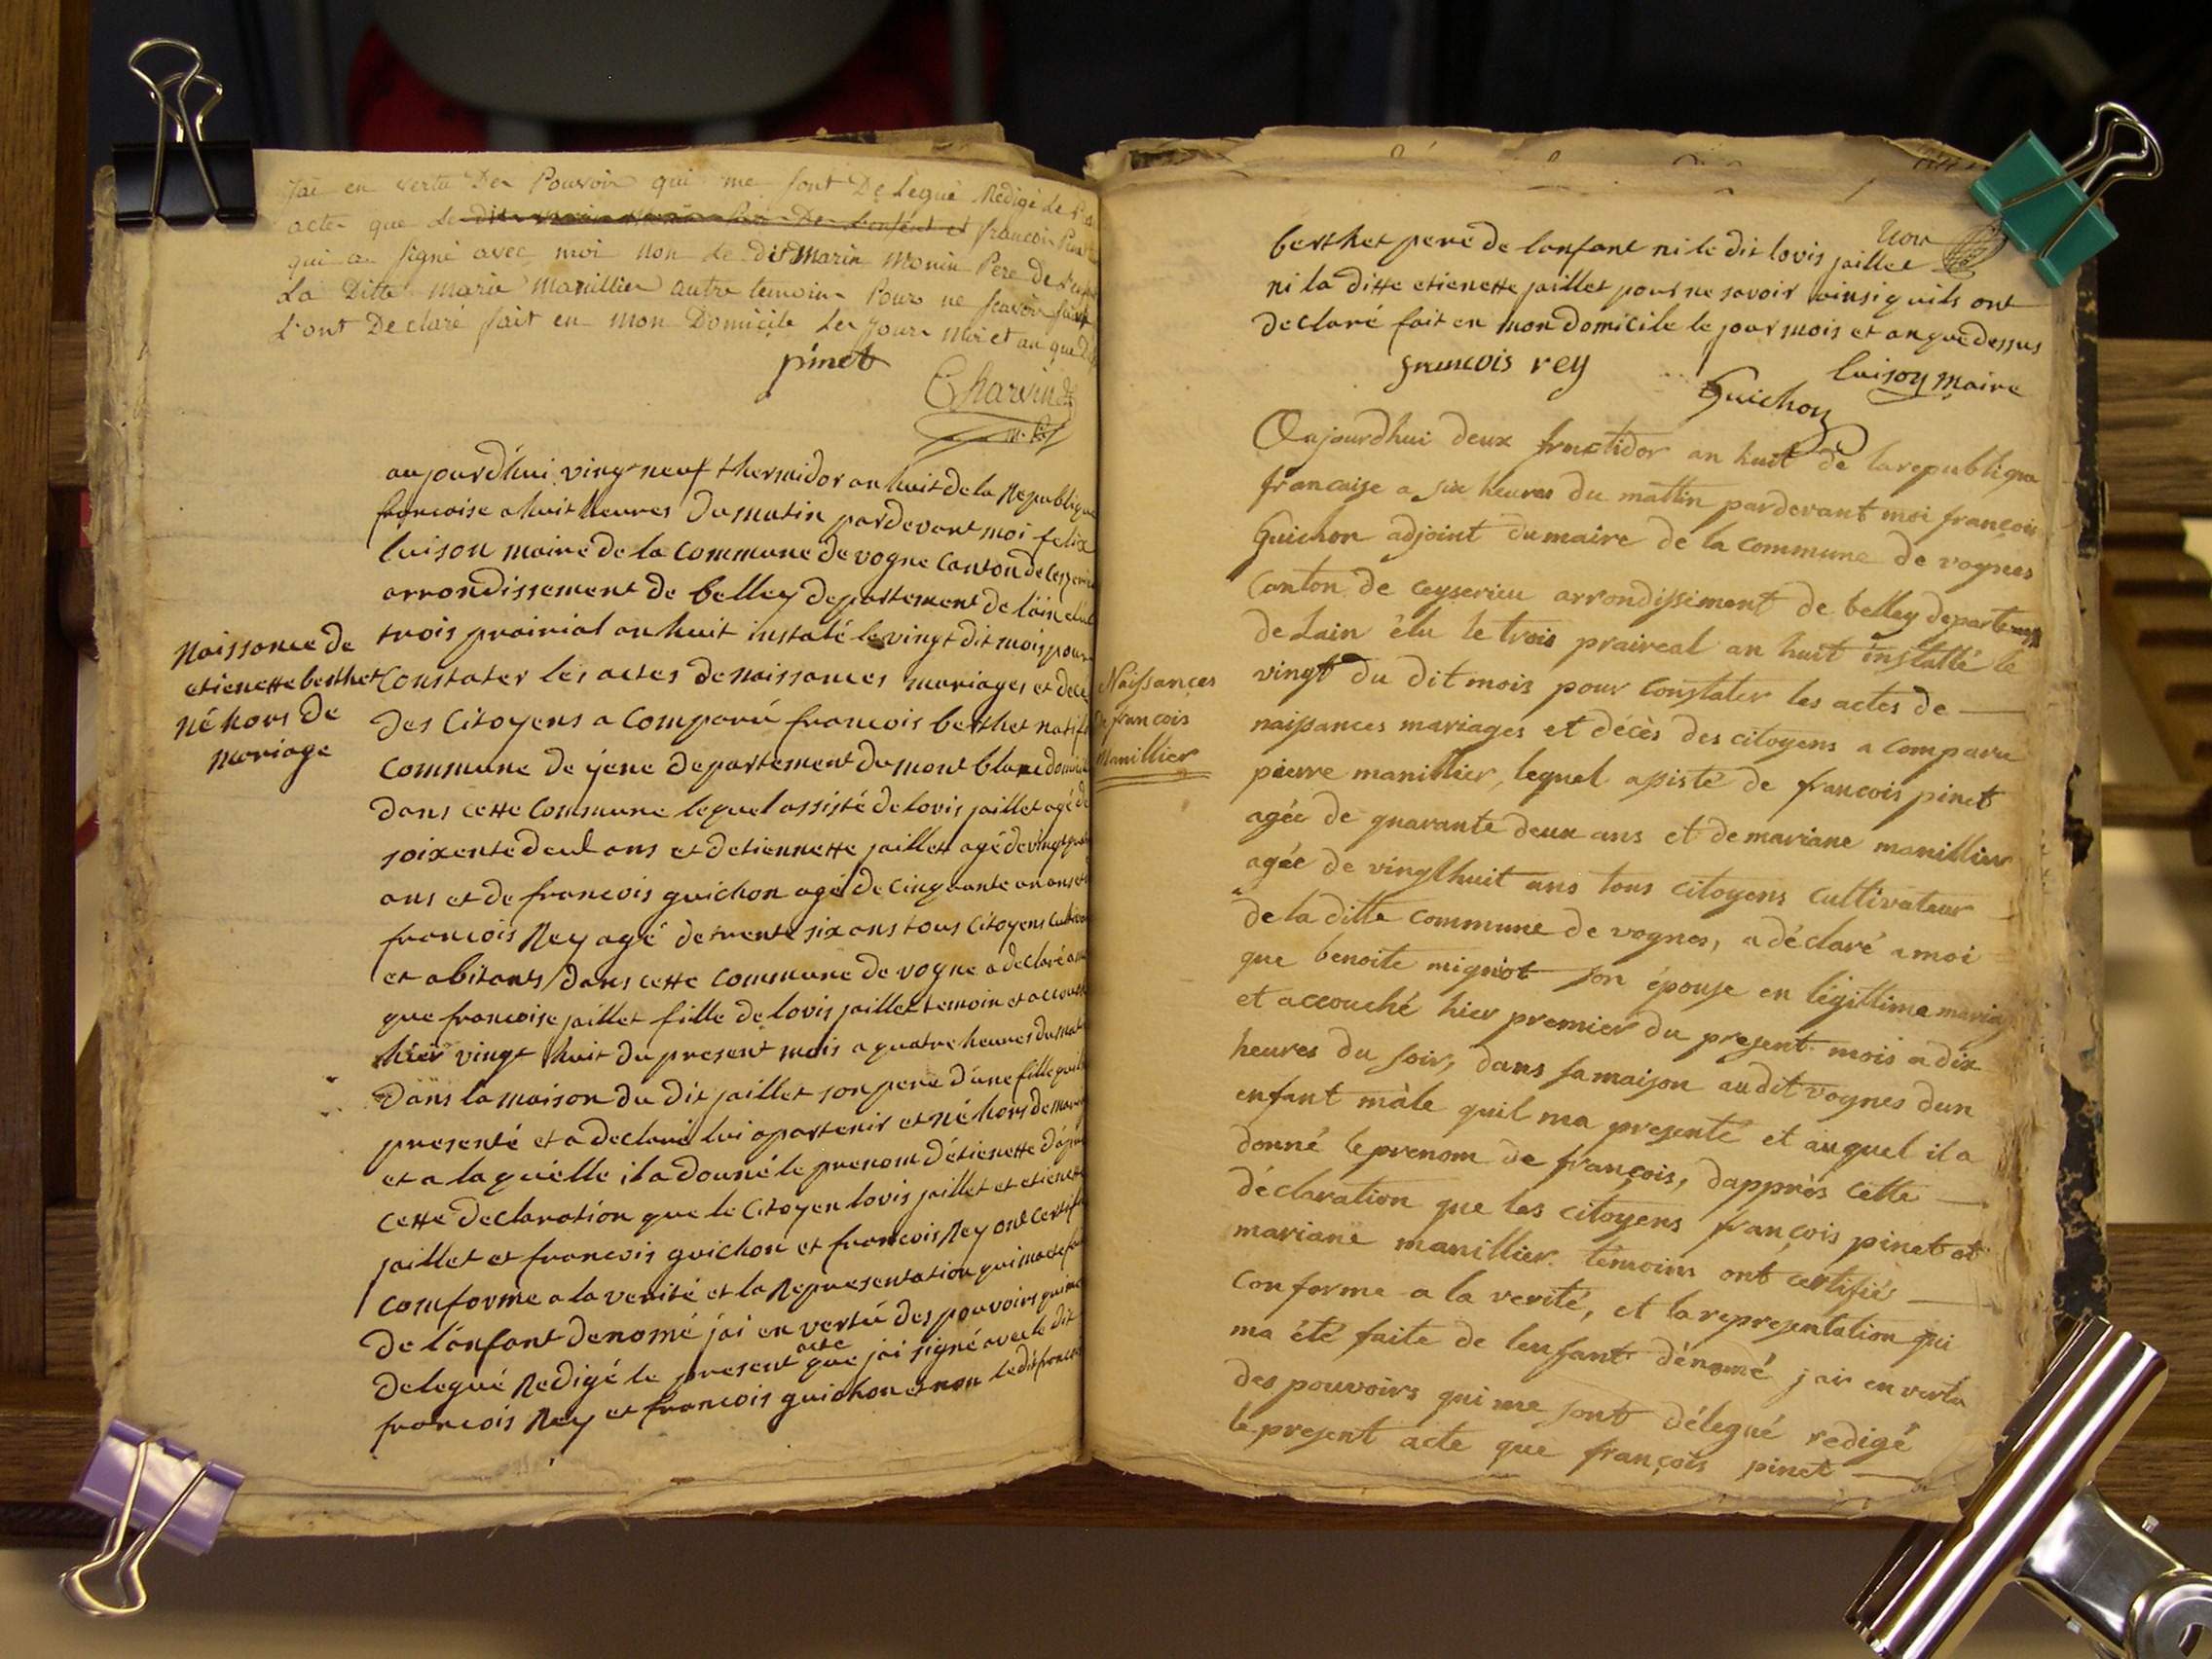 jai en vertu Des Pouvoir qui me sont De legué Redigé le
acte que le dit marin monin Pere De L'enfent et francois
qui a signé avec moi non le dit Marin Monin Pere De
La Ditte marie Manillier autre temoins Pour ne scavoir
L'ont Declaré fait en mon Domicile les Jour Moi et an que
pinet
Charvin
aujourd'hui vingt neuf thermidor an huit de la Republique
francoise a huit heures Du matin pardevant moi felix
luison maire de la Commune de vogne Canton de
arrondissement de belley departement de l'ain
trois prairial an huit instalé le vingt dit mois pour
Naissonce de
etienette berthet
né hors de
mariage
Constater les actes de naissances mariages et
Des Citoyens a Comparu francois berthet natif
Commune de yene departement du mont blanc
dans cette Commune lequel assisté de lovis jaillet agé de
soixente deux ans et detiennette jaillet agé de
ans et de francois guichon agé de cinquante
francois Rey agé de trente six ans tous Citoyens
et abitants dans cette Commune de vogne a declaré
que francoise jaillet fille de lovis jaillet temoin et
hier vingt huit du present mois a quatre heures du
Dans la maison du dit jaillet son pere d'une fille
presenté et a declaré lui apartenir et né hors de
et a la quelle il a donné le prenom d'étienette
cette declaration que le Citoyen lovis jaillet et
jaillet et francois guichon et francois Rey ont
comforme a la verité et la Representation qui
De l'anfant denomé jai en vertu des pouvoirs
acte
delegué Redigé le present que jai signé avec le dit
francois Rey et francois guichon et non le dit
berthet pere de lanfant ni le dit lovis jaillet
ni la ditte etienette jaillet pour ne savoir ainsi quils ont
declaré fait en mon domicile le jour mois et an que dessus
francois rey
luison maire
Guichon
Aujourdhui deux fructidor an huit de la republique
francaise a six heures du mattin pardevant moi françois
Guichon adjoint du maire de la commune de vognes
Canton de ceyserieu arrondissement de belley departement
de Lain élu le trois praireal an huit installé le
vingt du dit mois pour constater les actes de
Naissances
de francois
Manillier
naissances mariages et décès des citoyens a comparu
pierre manillier, lequel assisté de francois pinet
agée de quarante deux ans et de mariane manillier
agée de vingthuit ans tous citoyens cultivateur
de la ditte commune de vognes, a déclaré a moi
que benoite migniot son épouse en légittime
et accouché hier premier du present mois a dix
heures du soir, dans sa maison au dit vognes dun
enfant mâle quil ma presenté et auquel il a
donné le prenom de françois, dapprès cette
déclaration que les citoyens françois pinet et
mariane manillier témoins ont certifié
conforme a la verité, et la representation qui
ma été faite de lenfant dénomé jai en vertu
des pouvoirs qui me sont délegué redigé
le present acte que françois pinet